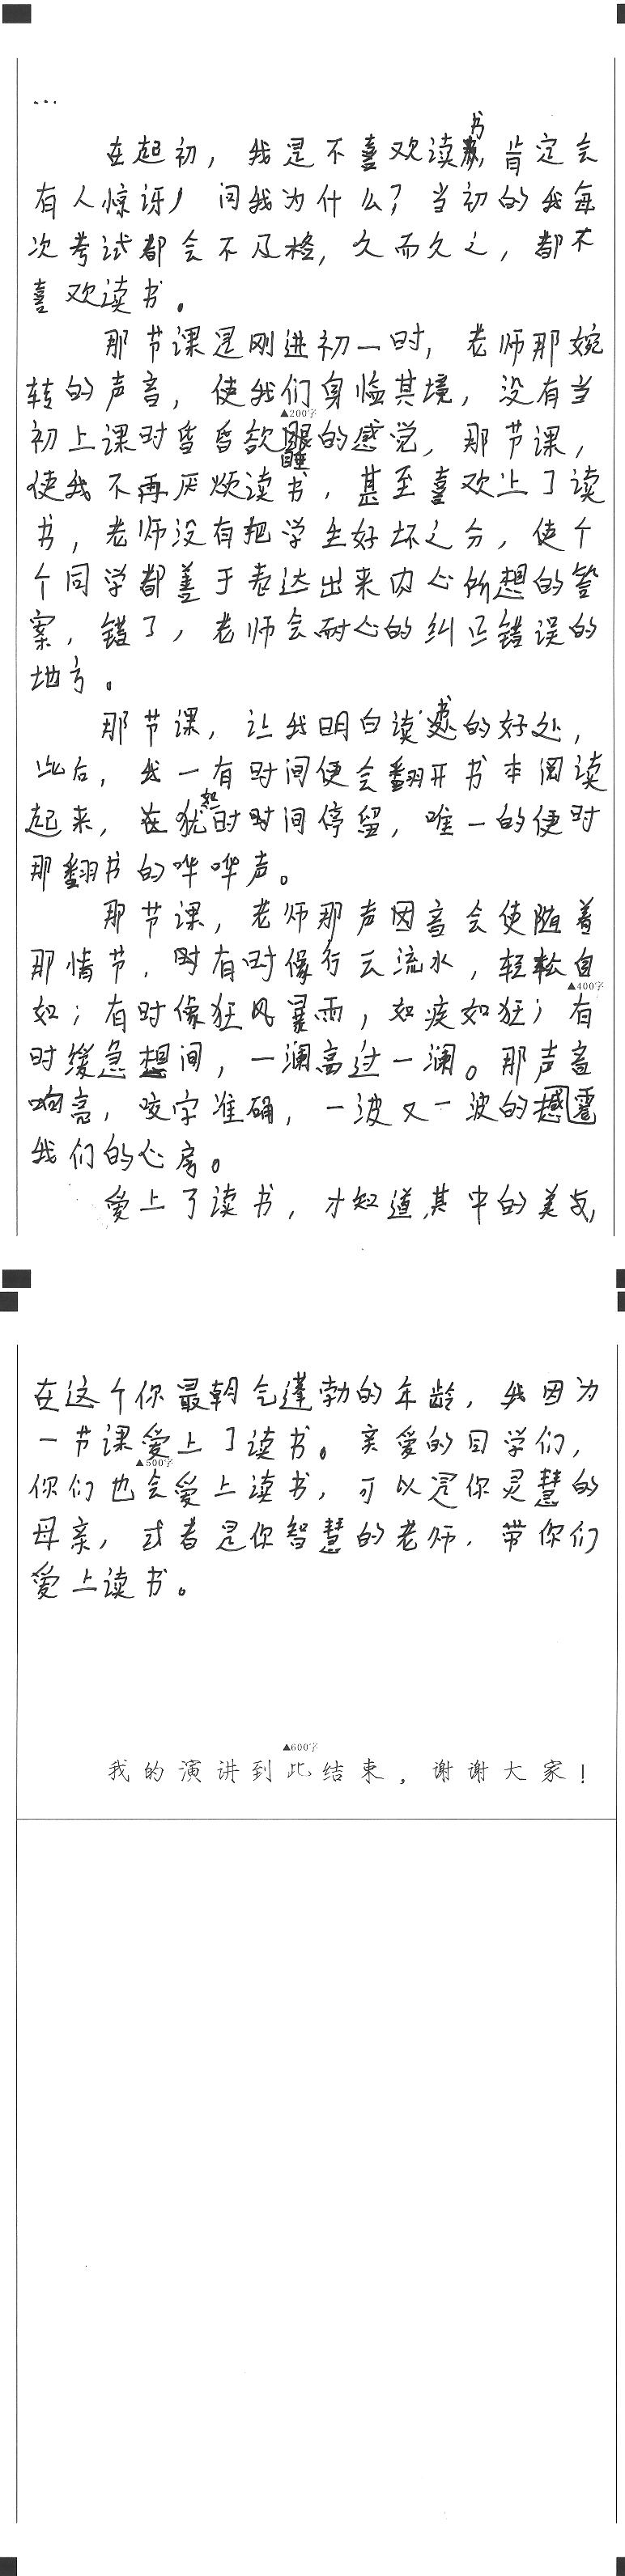 ...
在起初，我是不喜欢读书，肯定会
有人惊讶，问我为什么？当初的我每
次考试都会不及格，久而久之，都不
喜欢读书。
那节课是刚进初一时，老师那婉
转的声音，使我们身临其境，没有当
▲200字
初上课时昏昏欲睡的感觉，那节课，
使我不再厌烦读书，甚至喜欢上了读
书，老师没有把学生好坏之分，使个
个同学都善于表达出来内心所想的答
案，错了，老师会耐心的纠正错误的
地方。
那节课，让我明白读书的好处，
此后，我一有时间便会翻开书本阅读
起来，在犹如时时间停留，唯一的便时
那翻书的哗哗声。
那节课，老师那声因音会使随着
那情节，时有时像行云流水，轻松自
▲400字
如；有时像狂风暴雨，如疾如狂；有
时缓急想间，一澜高过一澜。那声音
响亮，咬字准确，一波又一波的撼震
我们的心房。
爱上了读书，才知道其中的美好，
在这个你最朝气蓬勃的年龄，我因为
一节课爱上了读书。亲爱的同学们，
▲500字
你们也会爱上读书，可以是你灵慧的
母亲，或者是你智慧的老师，带你们
爱上读书。
▲600字
我的演讲到此结束，谢谢大家！